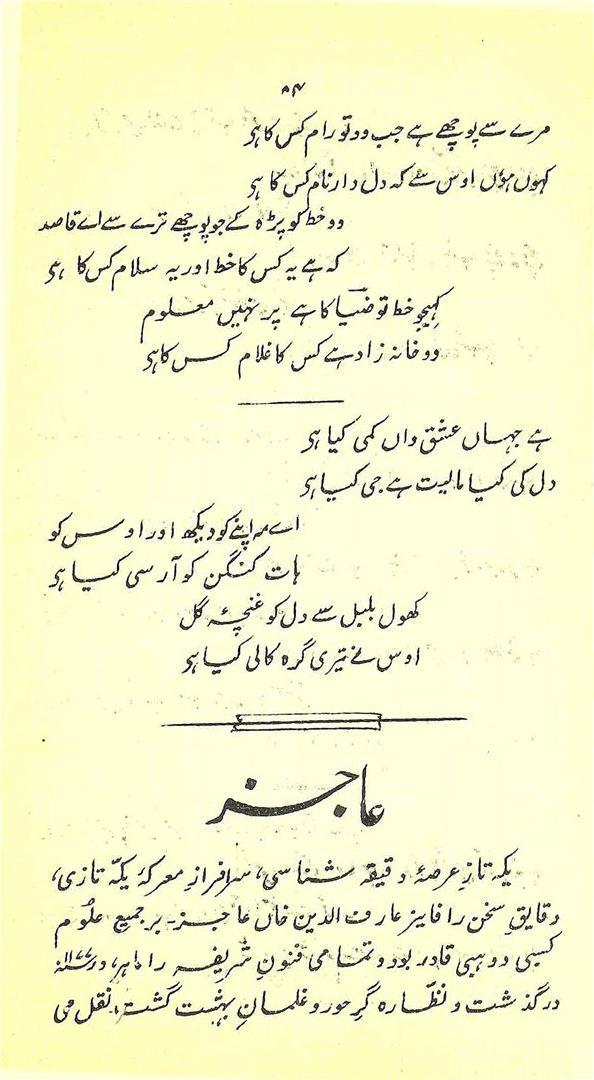 ۸۴
مرے سے پوچھے ہے جب وو تو رام کس کا ہی
کہوں ہوں اوس سے کہ دل دار نام کس کا ہی
وو خط کو پڑہ کے جو پوچھے ترے سے اے قاصد
کہ ہے یہ کس کا خط اور یہ سلام کس کا ہی
کہیجو خط تو ضیا کا ہے پر نہیں معلوم
وو خانہ زاد ہے کس کا غلام کس کا ہی
ہے جہاں عشق واں کمی کیا ہی
دل کی کیا مالیت ہے جی کیا ہی
اے مہ اپنے کو دیکھ اور اوس کو
ہات کنگن کو آرسی کیا ہی
کھول بلبل سے دل کو غنچۂ گل
اوس نے تیری گرہ کالی کیا ہی
عاجز
یکہ تازِ عرصۂ دقیقہ شناسی، سرافرازِ معرکۂ یکّہ تازی،
دقایقِ سخن را فایز عارف الدین خاں عاجز۔ بر جمیع علُوم
کسبی و وہبی قادر بود و تمامی فنونِ شریفہ را ماہر، در ۱۱۷۷ سنہ
درگذشت و نظّارہ گرِ حور و غلمانِ بہشت گشت، نقل می